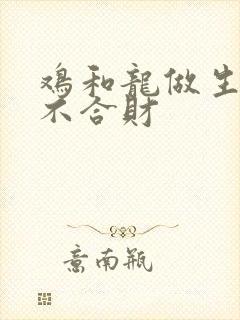 鸡和龍做生
不合財
意南瓶